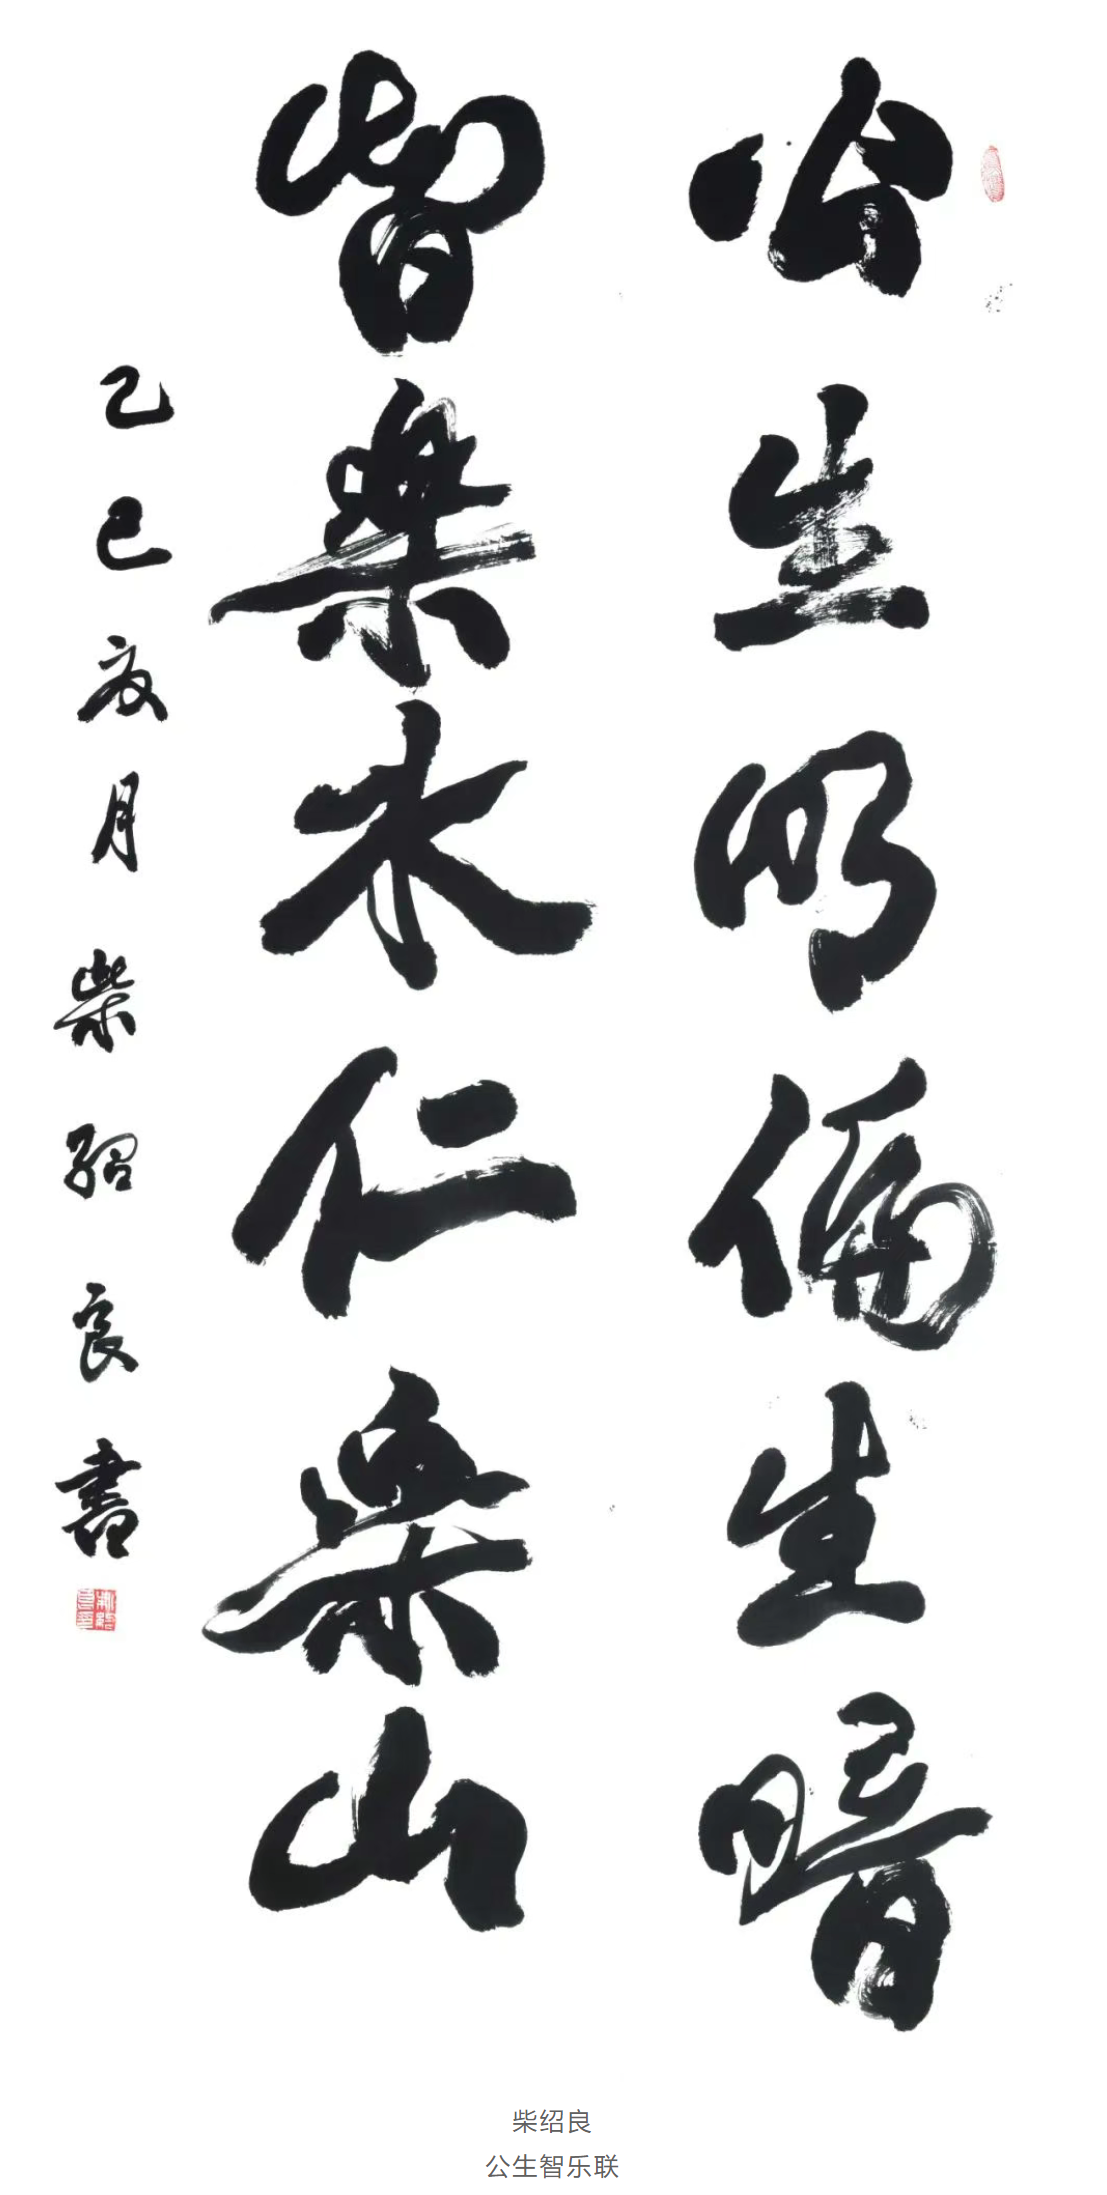 公生明偏生暗
智樂水仁樂山
乙巳夏月柴紹良書
柴绍良
公生智乐联